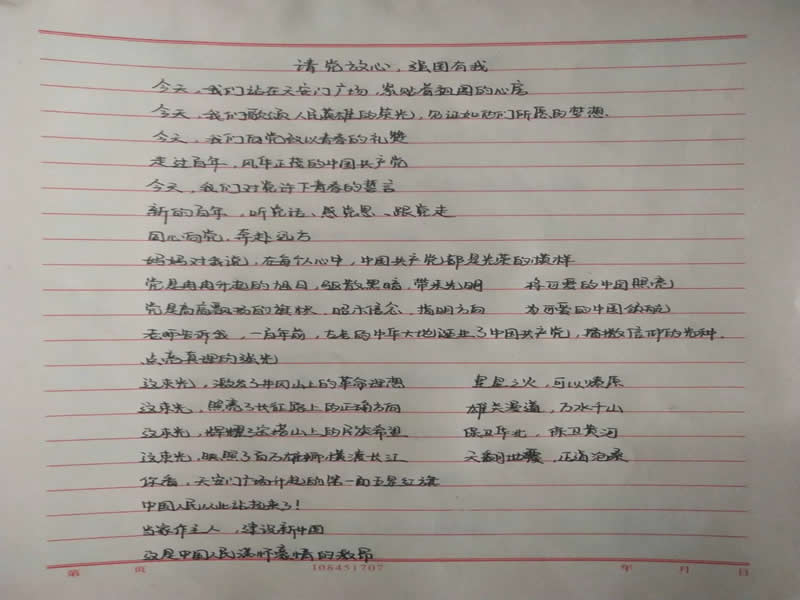 请党放心,强国有我
今天,我们站在天安门广场,紧贴着祖国的心房
今天,我们歌颂人民英雄的荣光,见证如他们所愿的梦想.
今天,我们向党致以青春的礼赞
走过百年,风华正茂的中国共产党
今天,我们对党许下青春的誓言
新的百年,听党话、感党恩、跟党走
同心向党,奔赴远方
妈妈对我说,在每个人心中,中国共产党都是光荣的模样
党是冉冉升起的旭日,驱散黑暗,带来光明 将可爱的中国照亮
党是高高飘扬的旗帜,昭示信念,指明方向 为可爱的中国领航
老师告诉我,一百年前,古老的中华大地诞生了中国共产党,播撒信仰的火种.
点亮真理的强光
这束光,激发了井冈山上的革命理想 星星之火,可以燎原
这束光,照亮了长征路上的正确方向 雄关漫道,万水千山
这束光,辉耀了宝塔山上的民族希望 保卫华北,保卫黄河
这束光,映照了百万雄师横渡长江 天翻地覆,正道沧桑
你看,天安门广场升起的第一面五星红旗
中国人民从此站起来了!
当家作主人,建设新中国
这是中国人民满怀豪情的激昂
第 页 108451707 年 月 日